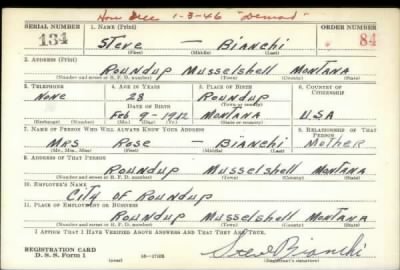 Hon Disc 1-3-46 "Demob"
SERIAL NUMBER 1. NAME (Print) ORDER NUMBER
134 Steve — Bianchi 84
(First) (Middle) (Last)
2. ADDRESS (Print)
Roundup Musselshell Montana
(Number and street or R. F. D. number) (Town) (County) (State)
3. TELEPHONE 4. AGE IN YEARS 5. PLACE OF BIRTH 6. COUNTRY OF CITIZENSHIP
None 28 Roundup
DATE OF BIRTH (Town or county)
Feb 9-1912 Montana U.S.A
(Exchange) (Number) (Mo.) (Day) (Yr.) (State or country)
7. NAME OF PERSON WHO WILL ALWAYS KNOW YOUR ADDRESS 8. RELATIONSHIP OF THAT PERSON
Mrs Rose — Bianchi Mother
(Mr., Mrs., Miss) (First) (Middle) (Last)
9. ADDRESS OF THAT PERSON
Roundup Musselshell Montana
(Number and street or R. F. D. number) (Town) (County) (State)
10. EMPLOYER'S NAME
City of Roundup
11. PLACE OF EMPLOYMENT OR BUSINESS
Roundup Musselshell Montana
(Number and street or R. F. D. number) (Town) (County) (State)
I AFFIRM THAT I HAVE VERIFIED ABOVE ANSWERS AND THAT THEY ARE TRUE.
REGISTRATION CARD Steve Bianchi
D. S. S. Form 1 (over) (Registrant's signature)